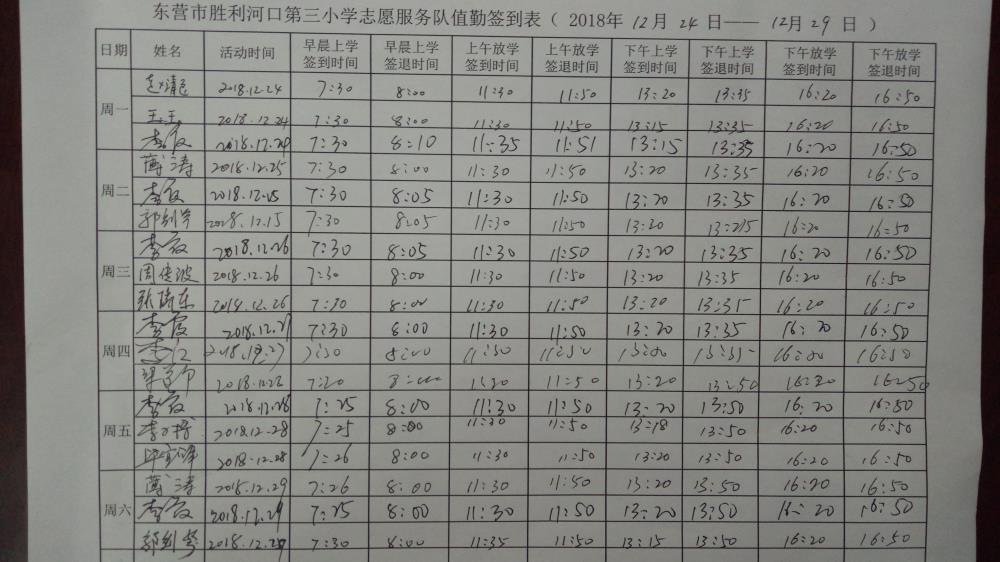 东营市胜利河口第三小学志愿服务队值勤签到表（ 2018年 12月 24日—— 12月 29 日 ）
日期 姓名 活动时间 早晨上学签到时间 早晨上学签退时间 上午放学签到时间 上午放学签退时间 下午上学签到时间 下午上学签退时间 下午放学签到时间 下午放学签退时间
周一 2018.12.24 7:30 8:00 11:30 11:50 13:20 13:35 16:20 16:50
王玉 2018.12.24 7:30 8:00 11:30 11:50 13:15 13:35 16:20 16:50
李霞 2018.12.24 7:30 8:10 11:35 11:51 13:15 13:35 16:20 16:50
周二 薄涛 2018.12.25 7:30 8:00 11:30 11:50 13:20 13:35 16:20 16:50
李霞 2018.12.25 7:30 8:05 11:30 11:50 13:20 13:35 16:20 16:50
2018.12.15 7:30 8:05 11:30 11:50 13:20 16:20 16:50
周三 李霞 2018.12.26 7:30 8:05 11:30 11:50 13:20 13:35 16:20 16:50
周传波 2018.12.26 7:30 8:00 11:30 11:50 13:20 13:35 16:20 16:50
2018.12.26 7:30 8:00 11:30 11:50 13:20 13:35 16:20 16:50
周四 李霞 2018.12.27 7:30 8:00 11:30 11:50 13:20 13:35 16:20 16:50
7:30 8:00 11:30 11:50 16:50
2018.12.22 7:20 8:00 11:30 11:50 13:20 13:50 16:20 16:50
周五 李霞 2018.12.28 7:25 8:00 11:30 11:50 13:20 13:50 16:20 16:50
2018.12.28 7:25 8:00 11:30 11:50 13:18 13:50 16:20 16:50
2018.12.28 7:26 8:00 11:30 11:50 13:20 13:50 16:20 16:50
周六 薄涛 2018.12.29 7:26 8:00 11:30 11:50 13:20 13:50 16:20 16:50
李霞 2018.12.29 7:25 8:00 11:30 11:50 13:20 13:50 16:20 16:50
2018.12.29 7:30 8:00 11:35 11:50 13:15 13:50 16:20 16:50